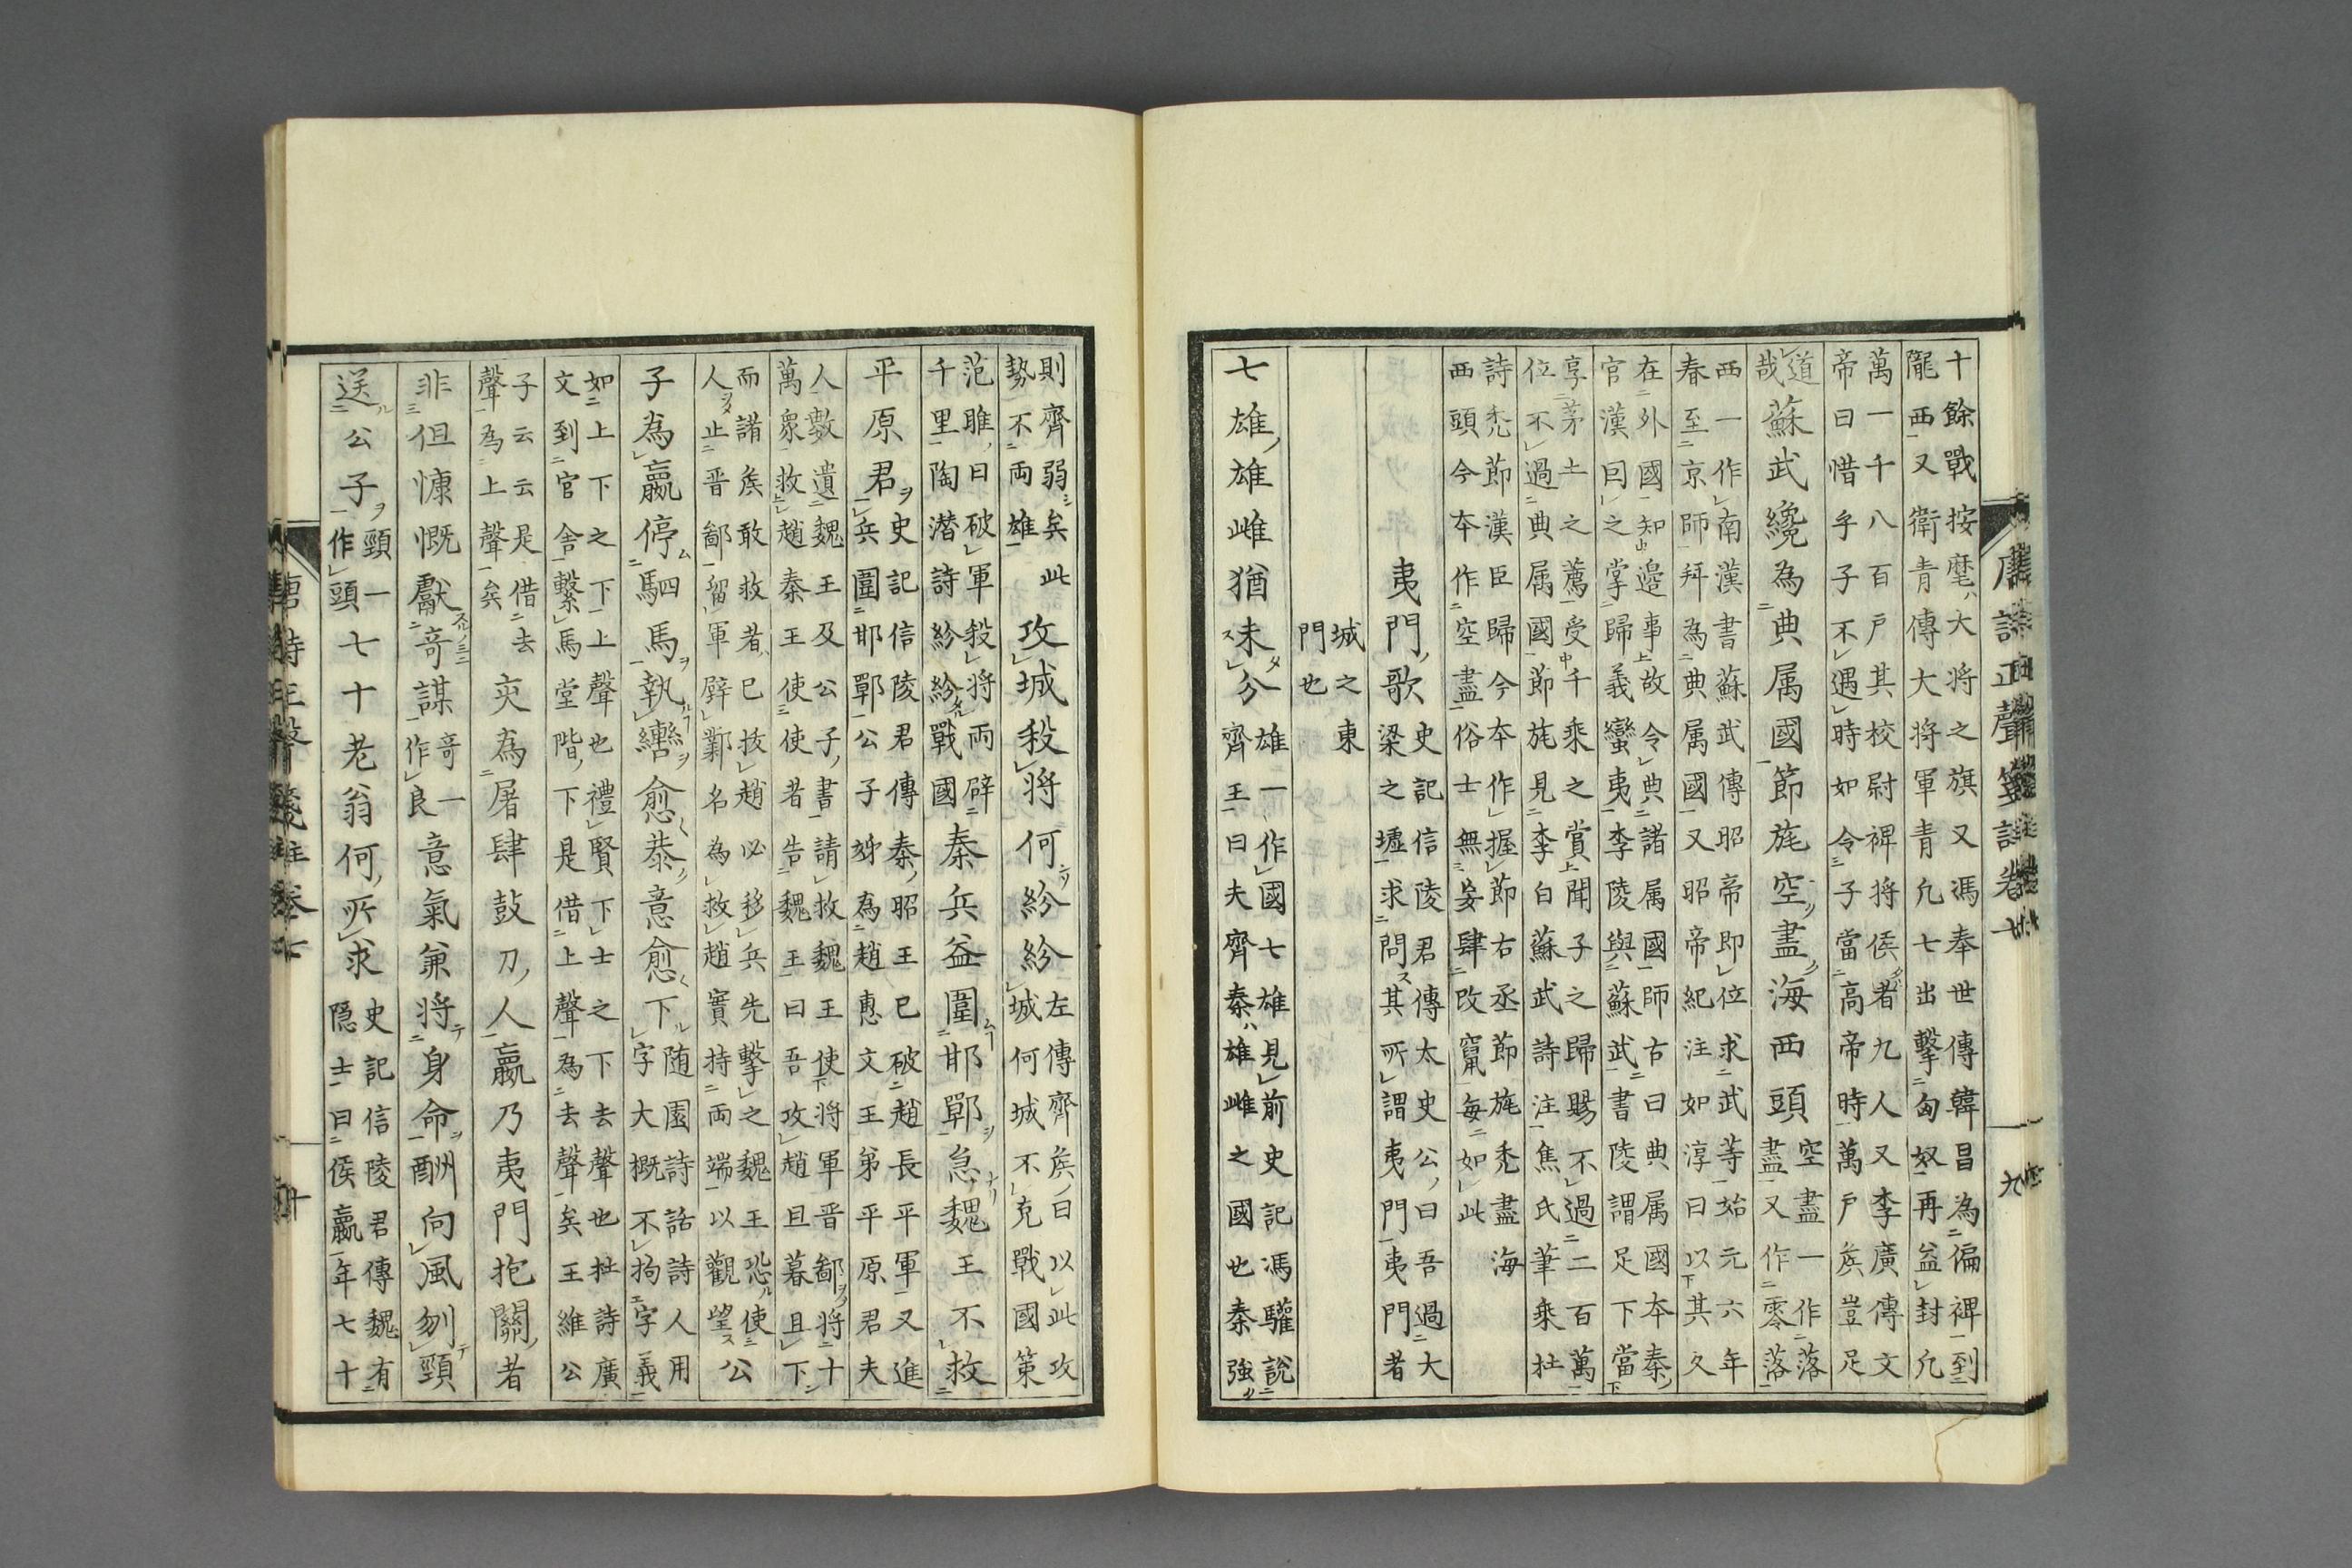 十餘戰按麾大將之旗又馮奉世傳韓昌為偏裨到
隴西又衛青傳大將軍青凢七出擊匈奴再益封凢
萬一千八百戶其校尉裨將侯者九人又李廣傳文
帝曰惜乎子不遇時如令子當高帝時萬戶矦豈足
道
哉
蘇武纔為典属國節旄空盡海西頭
空盡一作落
盡又作零落
西一作南漢書蘇武傳昭帝即位求武等始元六年
春至京師拜為典属國又昭帝紀注如淳曰以其久
在外國知邊事故令典諸属國師古曰典属國本秦
官漢因之掌歸義蠻夷李陵與蘇武書陵謂足下當
享茅土之薦受千乘之賞聞子之歸賜不過二百萬
位不過典属國節旄見李白蘇武詩注焦氏筆乘杜
詩禿節漢臣歸今本作握節右丞節旄禿盡海
西頭今本作空盡俗士無妄肆改竄每如此
夷門歌
史記信陵君傳太史公曰吾過大
梁之墟求問其所謂夷門夷門者
城之東
門也
七雄雄雌猶未分
雄一作國七雄見前史記馮驩說
齊王曰夫齊秦雄雌之國也秦強
則齊弱矣此
勢不両雄
攻城殺將何紛紛
左傳齊矦曰以此攻
城何城不克戰國策
范雎曰破軍殺將両辟
千里陶潜詩紛紛戰國
秦兵益圍邯鄲急魏王不救
平原君
史記信陵君傳秦昭王已破趙長平軍又進
兵圍邯鄲公子姊為趙惠文王弟平原君夫
人數遺魏王及公子書請救魏王使將軍晋鄙將十
萬衆救趙秦王使使者告魏王曰吾攻趙且暮且下
而諸矦敢救者已拔趙必移兵先擊之魏王恐使
人止晋鄙留軍壁鄴名為救趙實持両端以觀望
公
子為嬴停駟馬執轡愈恭意愈下
随園詩話詩人用
字大概不拘字義
如上下之下上聲也禮賢下士之下去聲也杜詩廣
文到官舎繫馬堂階下是借上聲為去聲矣王維公
子云云是借去
聲為上聲矣
亥為屠肆鼓刀人嬴乃夷門抱關者
非但慷慨獻奇謀
竒一
作良
意氣兼將身命酬向風刎頸
送公子
頸一
作頭
七十老翁何所求
史記信陵君傳魏有
隠士曰侯嬴年七十
唐詩正聲箋註卷七
九